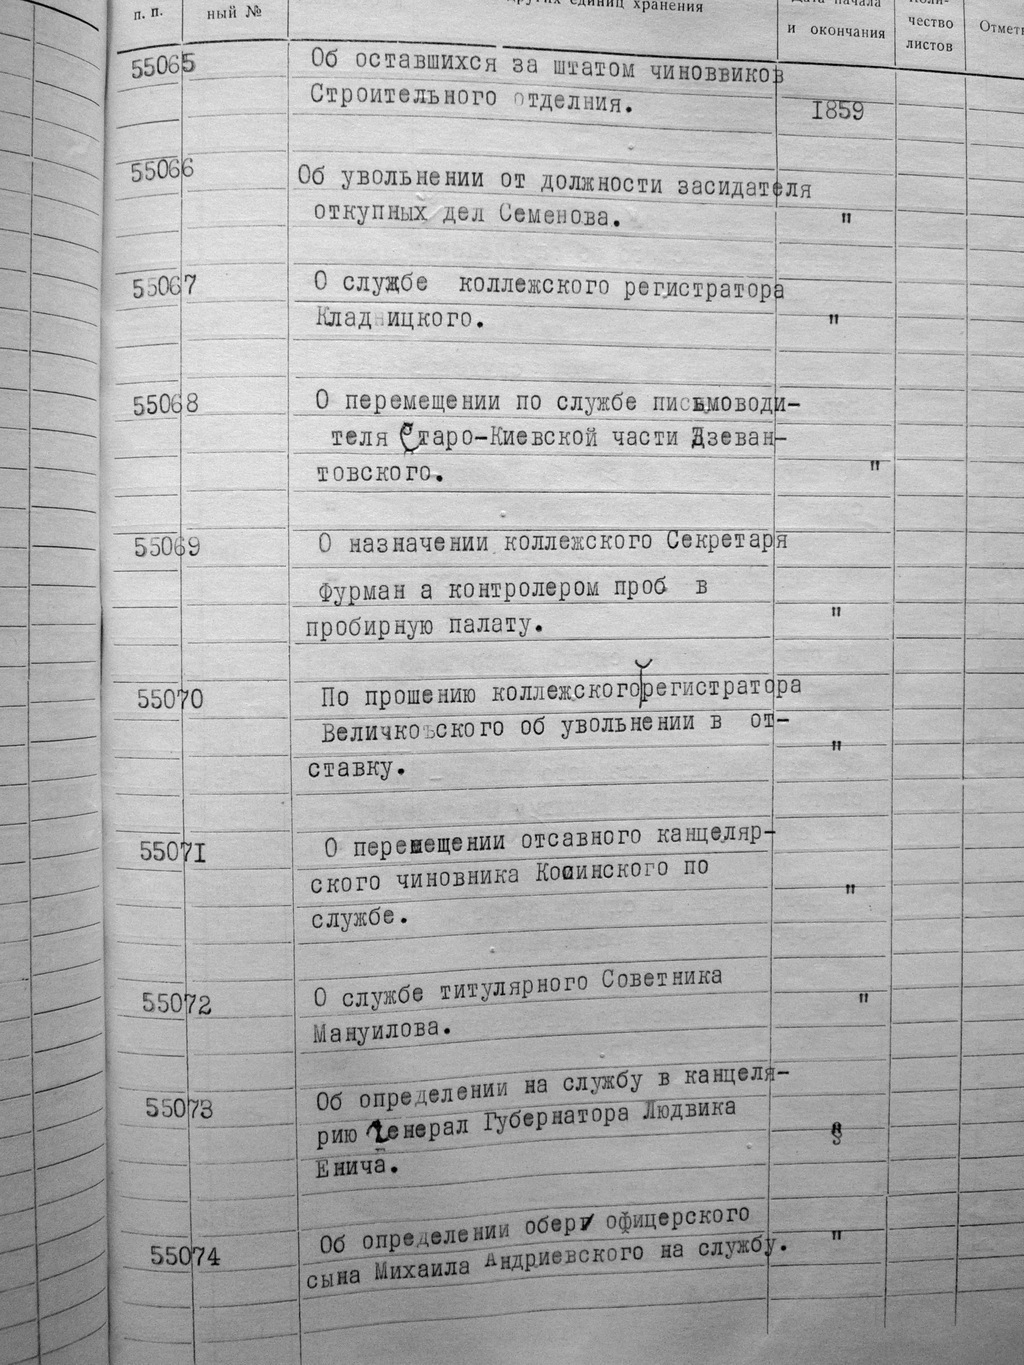 п. п.
ный №
других единиц хранения
Дата начала
и окончания
Коли-
чество
листов
Отмет
55065 Об оставшихся за штатом чиноввиков
Строительного отделния. 1859
55066 Об увольнении от должности засидателя
откупных дел Семенова. "
55067 О службе коллежского регистратора
Кладницкого. "
55068 О перемещении по службе письмоводи-
теля Старо-Киевской части Дзеван-
товского. "
55069 О назначении коллежского Секретаря
Фурман а контролером проб в
пробирную палату. "
55070 По прошению коллежского регистратора
Величковского об увольнении в от-
ставку. "
55071 О перемещении отсавного канцеляр-
ского чиновника Косинского по
службе. "
55072 О службе титулярного Советника
Мануилова. "
55073 Об определении на службу в канцеля-
рию Генерал Губернатора Людвика
Енича.
55074 Об определении обер офицерского
сына Михаила Андриевского на службу. "